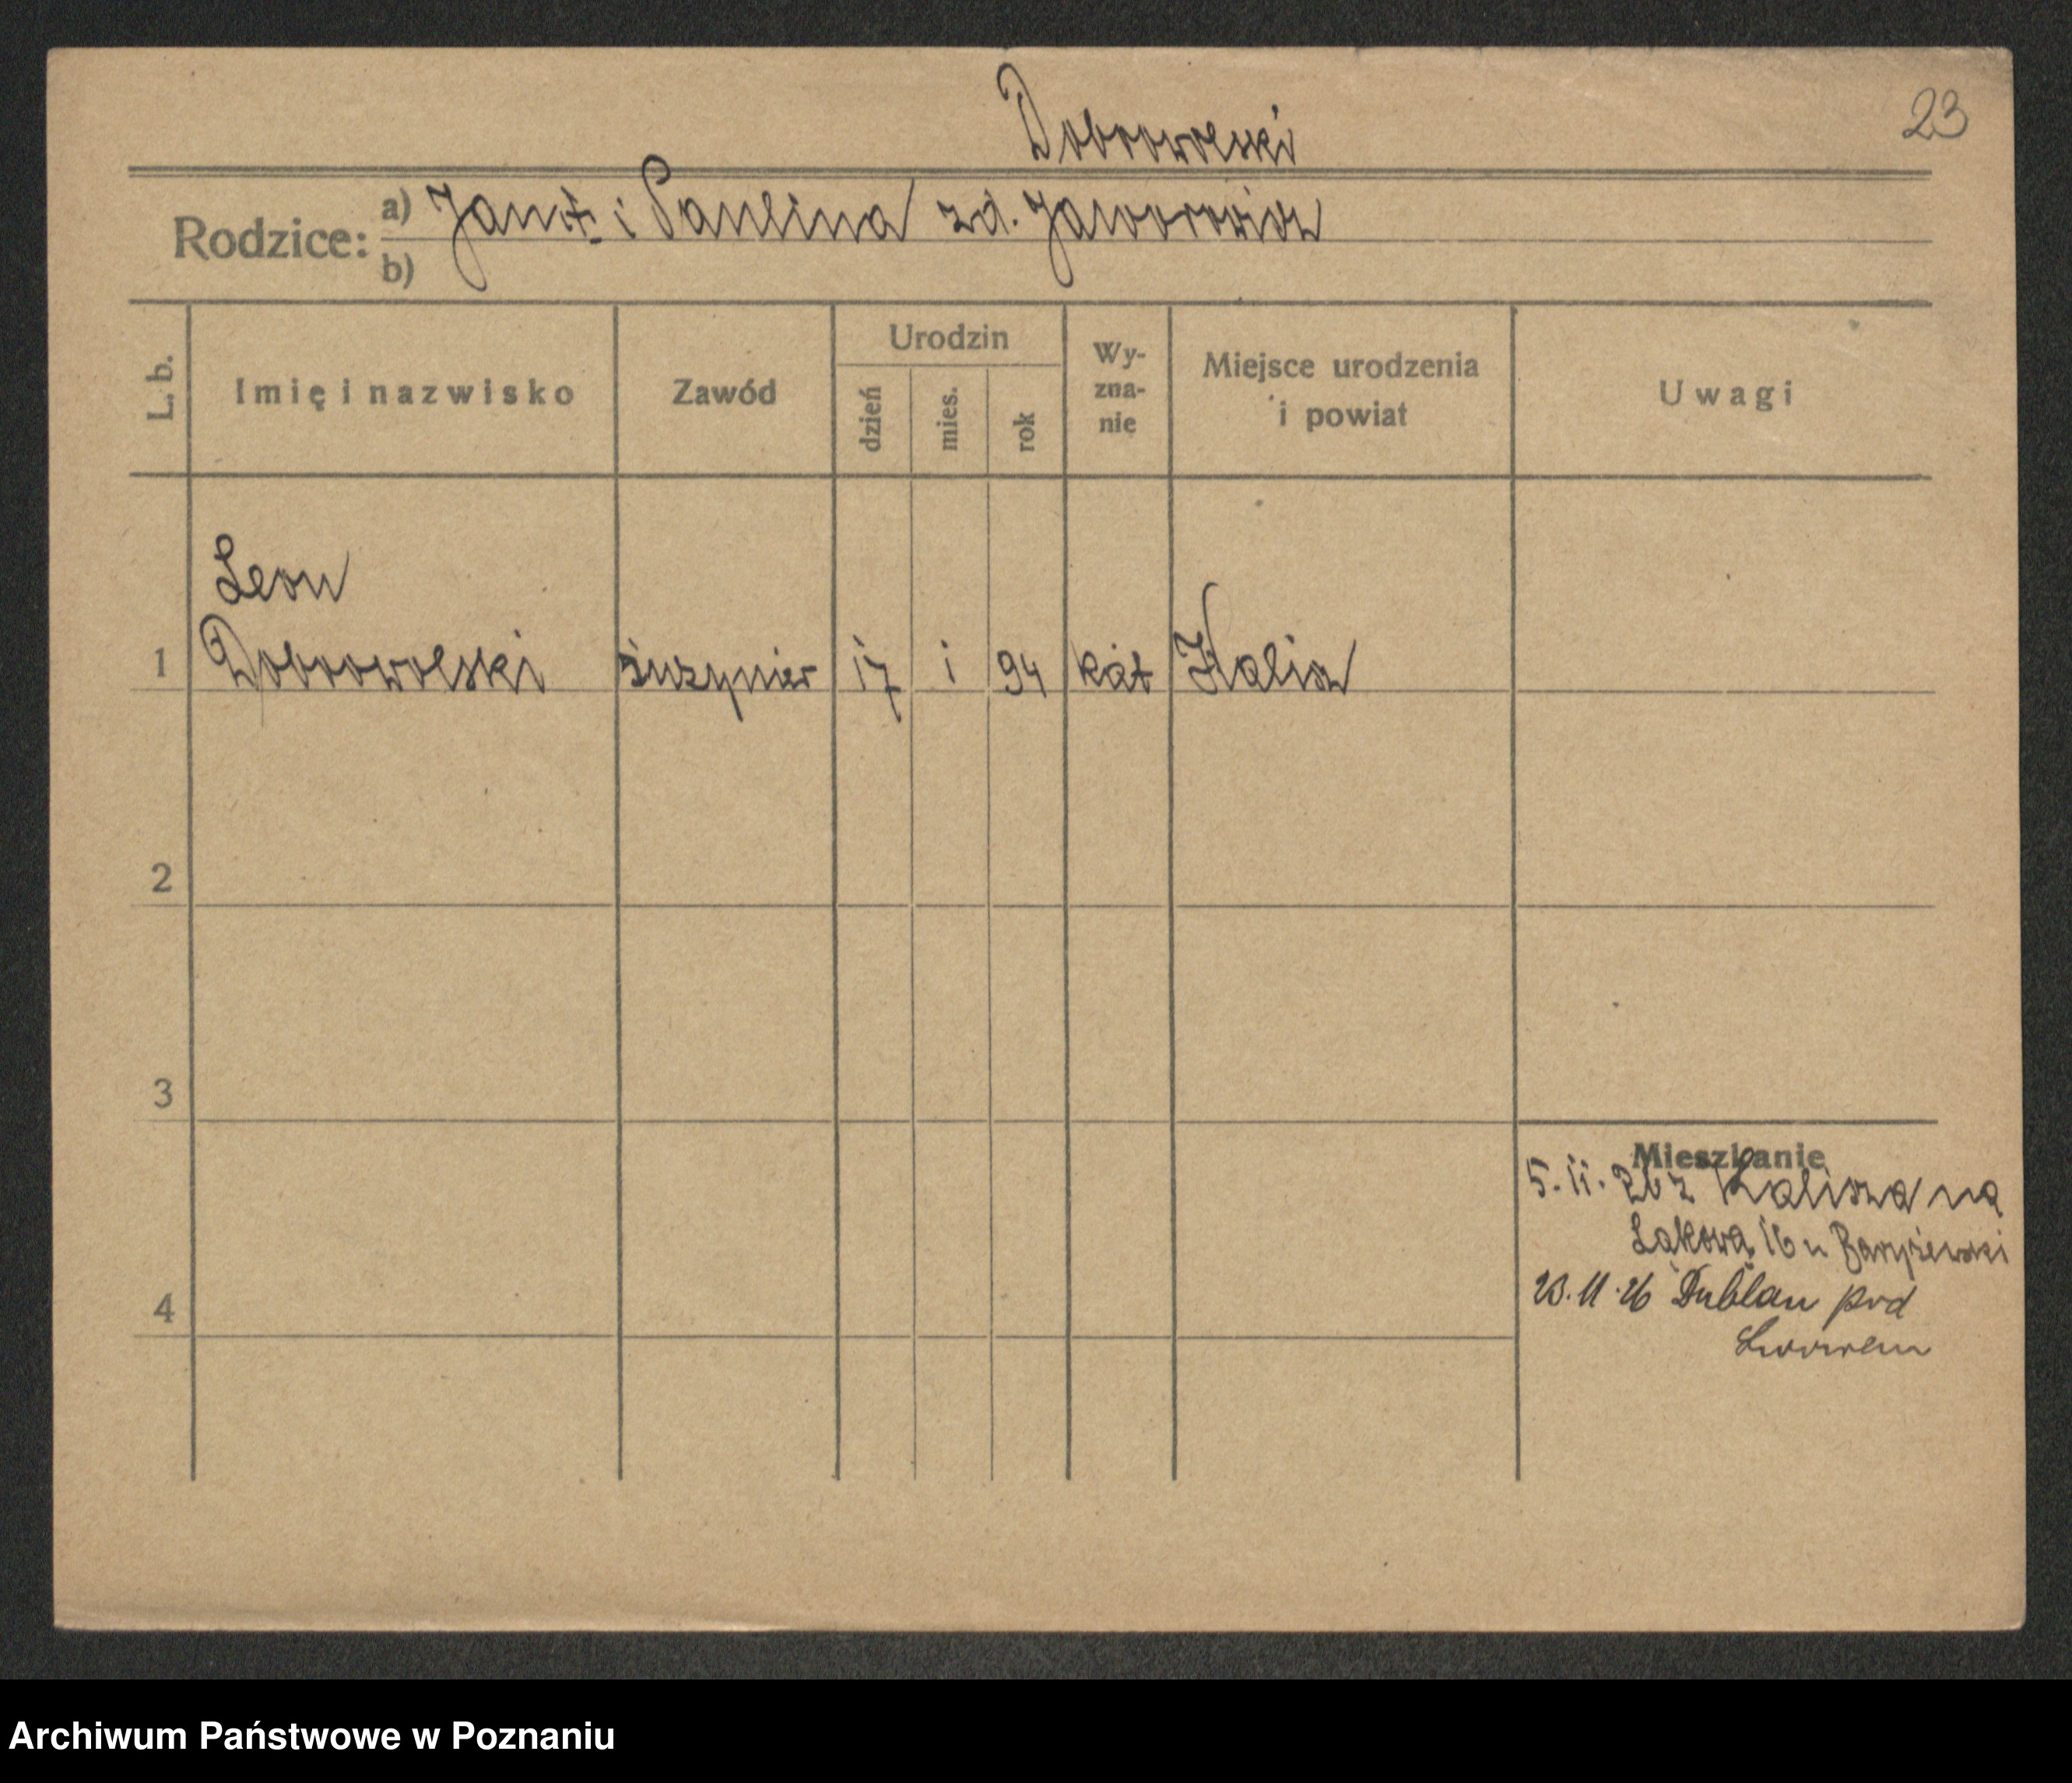 23
Dobrowolski
Rodzice:
a) Jan ✝ i Paulina zd. Jaworowicz
b)
L. b.
Imię i nazwisko
Zawód
Urodzin
dzień
mies.
rok
Wy-
zna-
nie
Miejsce urodzenia
i powiat
Uwagi
Leon
1 Dobrowolski inżynier 17 1 94 kat Kalisz
2
3
Mieszkanie
5. 11. 26 z Kalisza na
Łąkową 16 u
4
23. 11. 26 Dublan pod
Lwowem
Archiwum Państwowe w Poznaniu